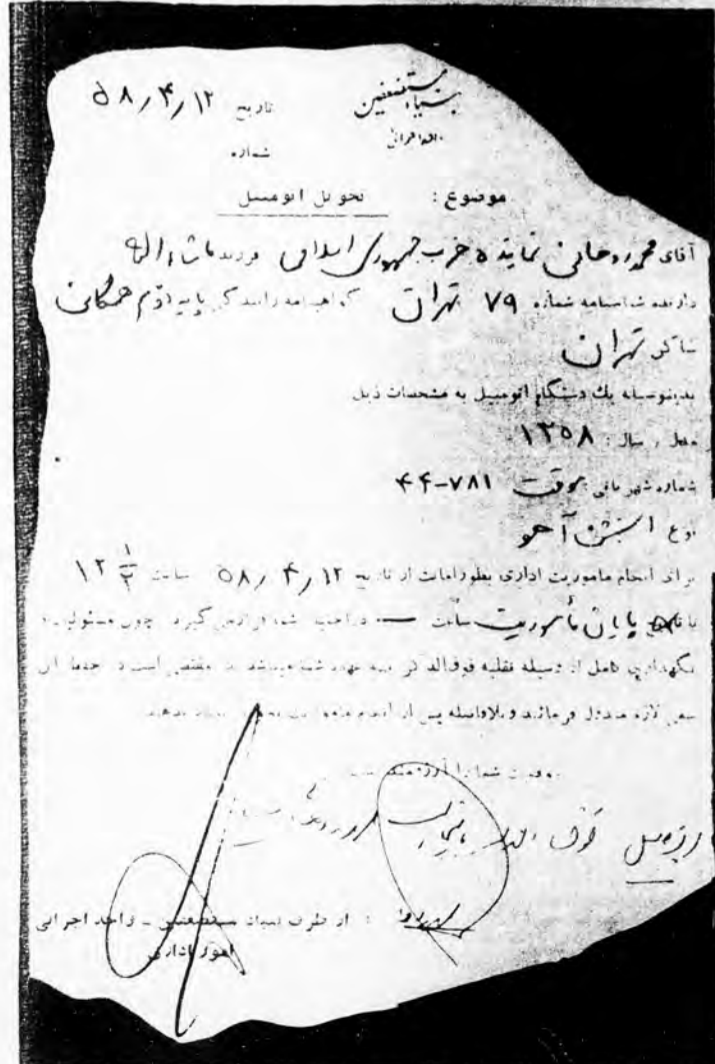 بنیاد مستضعفین
تاریخ ۵۸/۴/۱۲
واحد اجرائی
شماره
موضوع : تحویل اتومبیل
آقای محمد روحانی نماینده حزب جمهوری اسلامی فرزند ماشاءاله
دارنده شناسنامه شماره ۷۹ تهران گواهینامه رانندگی پایه دوم همگانی
ساکن تهران
بدینوسیله یک دستگاه اتومبیل به مشخصات ذیل
مدل / سال : ۱۳۵۸
شماره شهربانی : موقت ۷۸۱-۴۴
نوع استیشن آهو
برای انجام ماموریت اداری بطور امانت از تاریخ ۵۸/۴/۱۲ ساعت ۱۲ ۱/۲
تا پایان مأموریت ساعت — در اختیار شما قرار می گیرد چون مسئولیت
نگهداری کامل از وسیله نقلیه فوق الذکر به عهده شما میباشد مقتضی است در حفظ آن
سعی لازم مبذول فرمائید و بلافاصله پس از انجام ماموریت تحویل بدهید
موفقیت شما را آرزومند است
اتومبیل فوق
از طرف بنیاد مستضعفین - واحد اجرائی
امور اداری